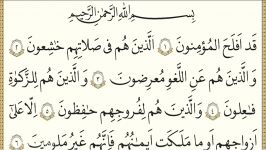 بِسْمِ اللَّهِ الرَّحْمَٰنِ الرَّحِيمِ
قَدْ أَفْلَحَ الْمُؤْمِنُونَ ١ الَّذِينَ هُمْ فِي صَلَاتِهِمْ خَٰشِعُونَ ٢
وَالَّذِينَ هُمْ عَنِ اللَّغْوِ مُعْرِضُونَ ٣ وَالَّذِينَ هُمْ لِلزَّكَوٰةِ
فَٰعِلُونَ ٤ وَالَّذِينَ هُمْ لِفُرُوجِهِمْ حَٰفِظُونَ ٥ إِلَّا عَلَىٰ
أَزْوَاجِهِمْ أَوْ مَا مَلَكَتْ أَيْمَٰنُهُمْ فَإِنَّهُمْ غَيْرُ مَلُومِينَ ٦